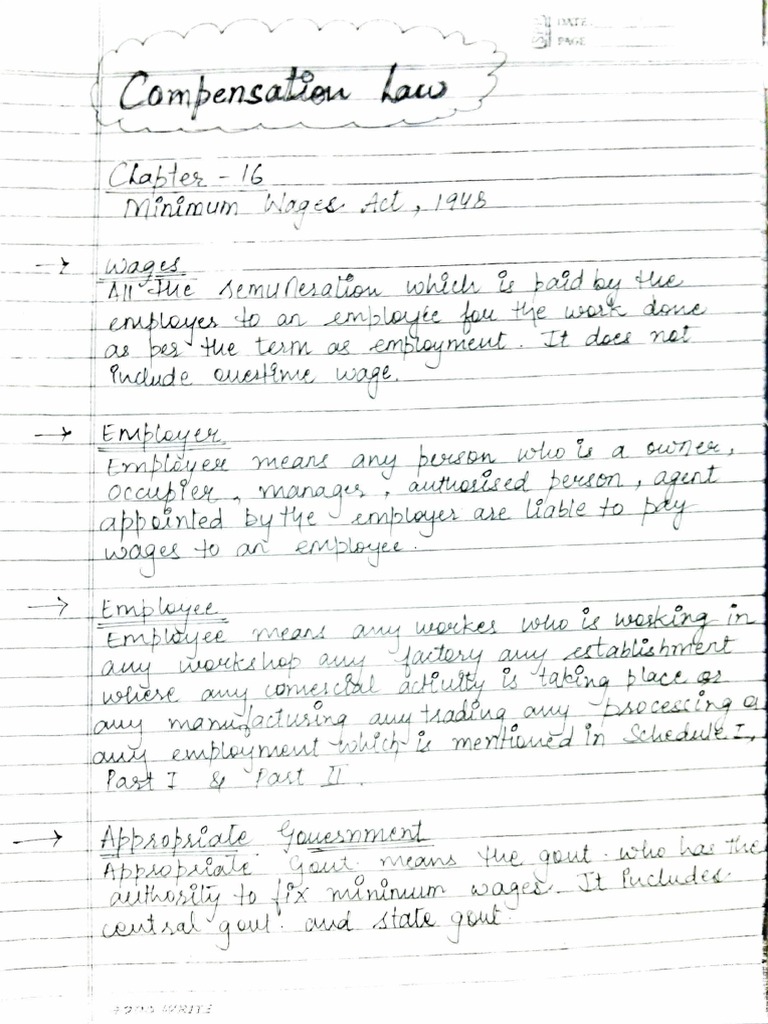 DATE
PAGE
Compensation Law
Chapter - 16
Minimum Wages Act, 1948
→ Wages
All the remuneration which is paid by the
employer to an employee for the work done
as per the term as employment. It does not
include overtime wage.
→ Employer
Employer means any person who is a owner,
occupier, manager, authorised person, agent
appointed by the employer are liable to pay
wages to an employee.
→ Employee
Employee means any worker who is working in
any workshop any factory any establishment
where any comercial activity is taking place or
any manufacturing any trading any processing o
any employment which is mentioned in Schedule I,
Part I & Part II.
→ Appropriate Government
Appropriate Govt. means the govt. who has the
authority to fix minimum wages. It includes
central govt. and state govt.
WRITE